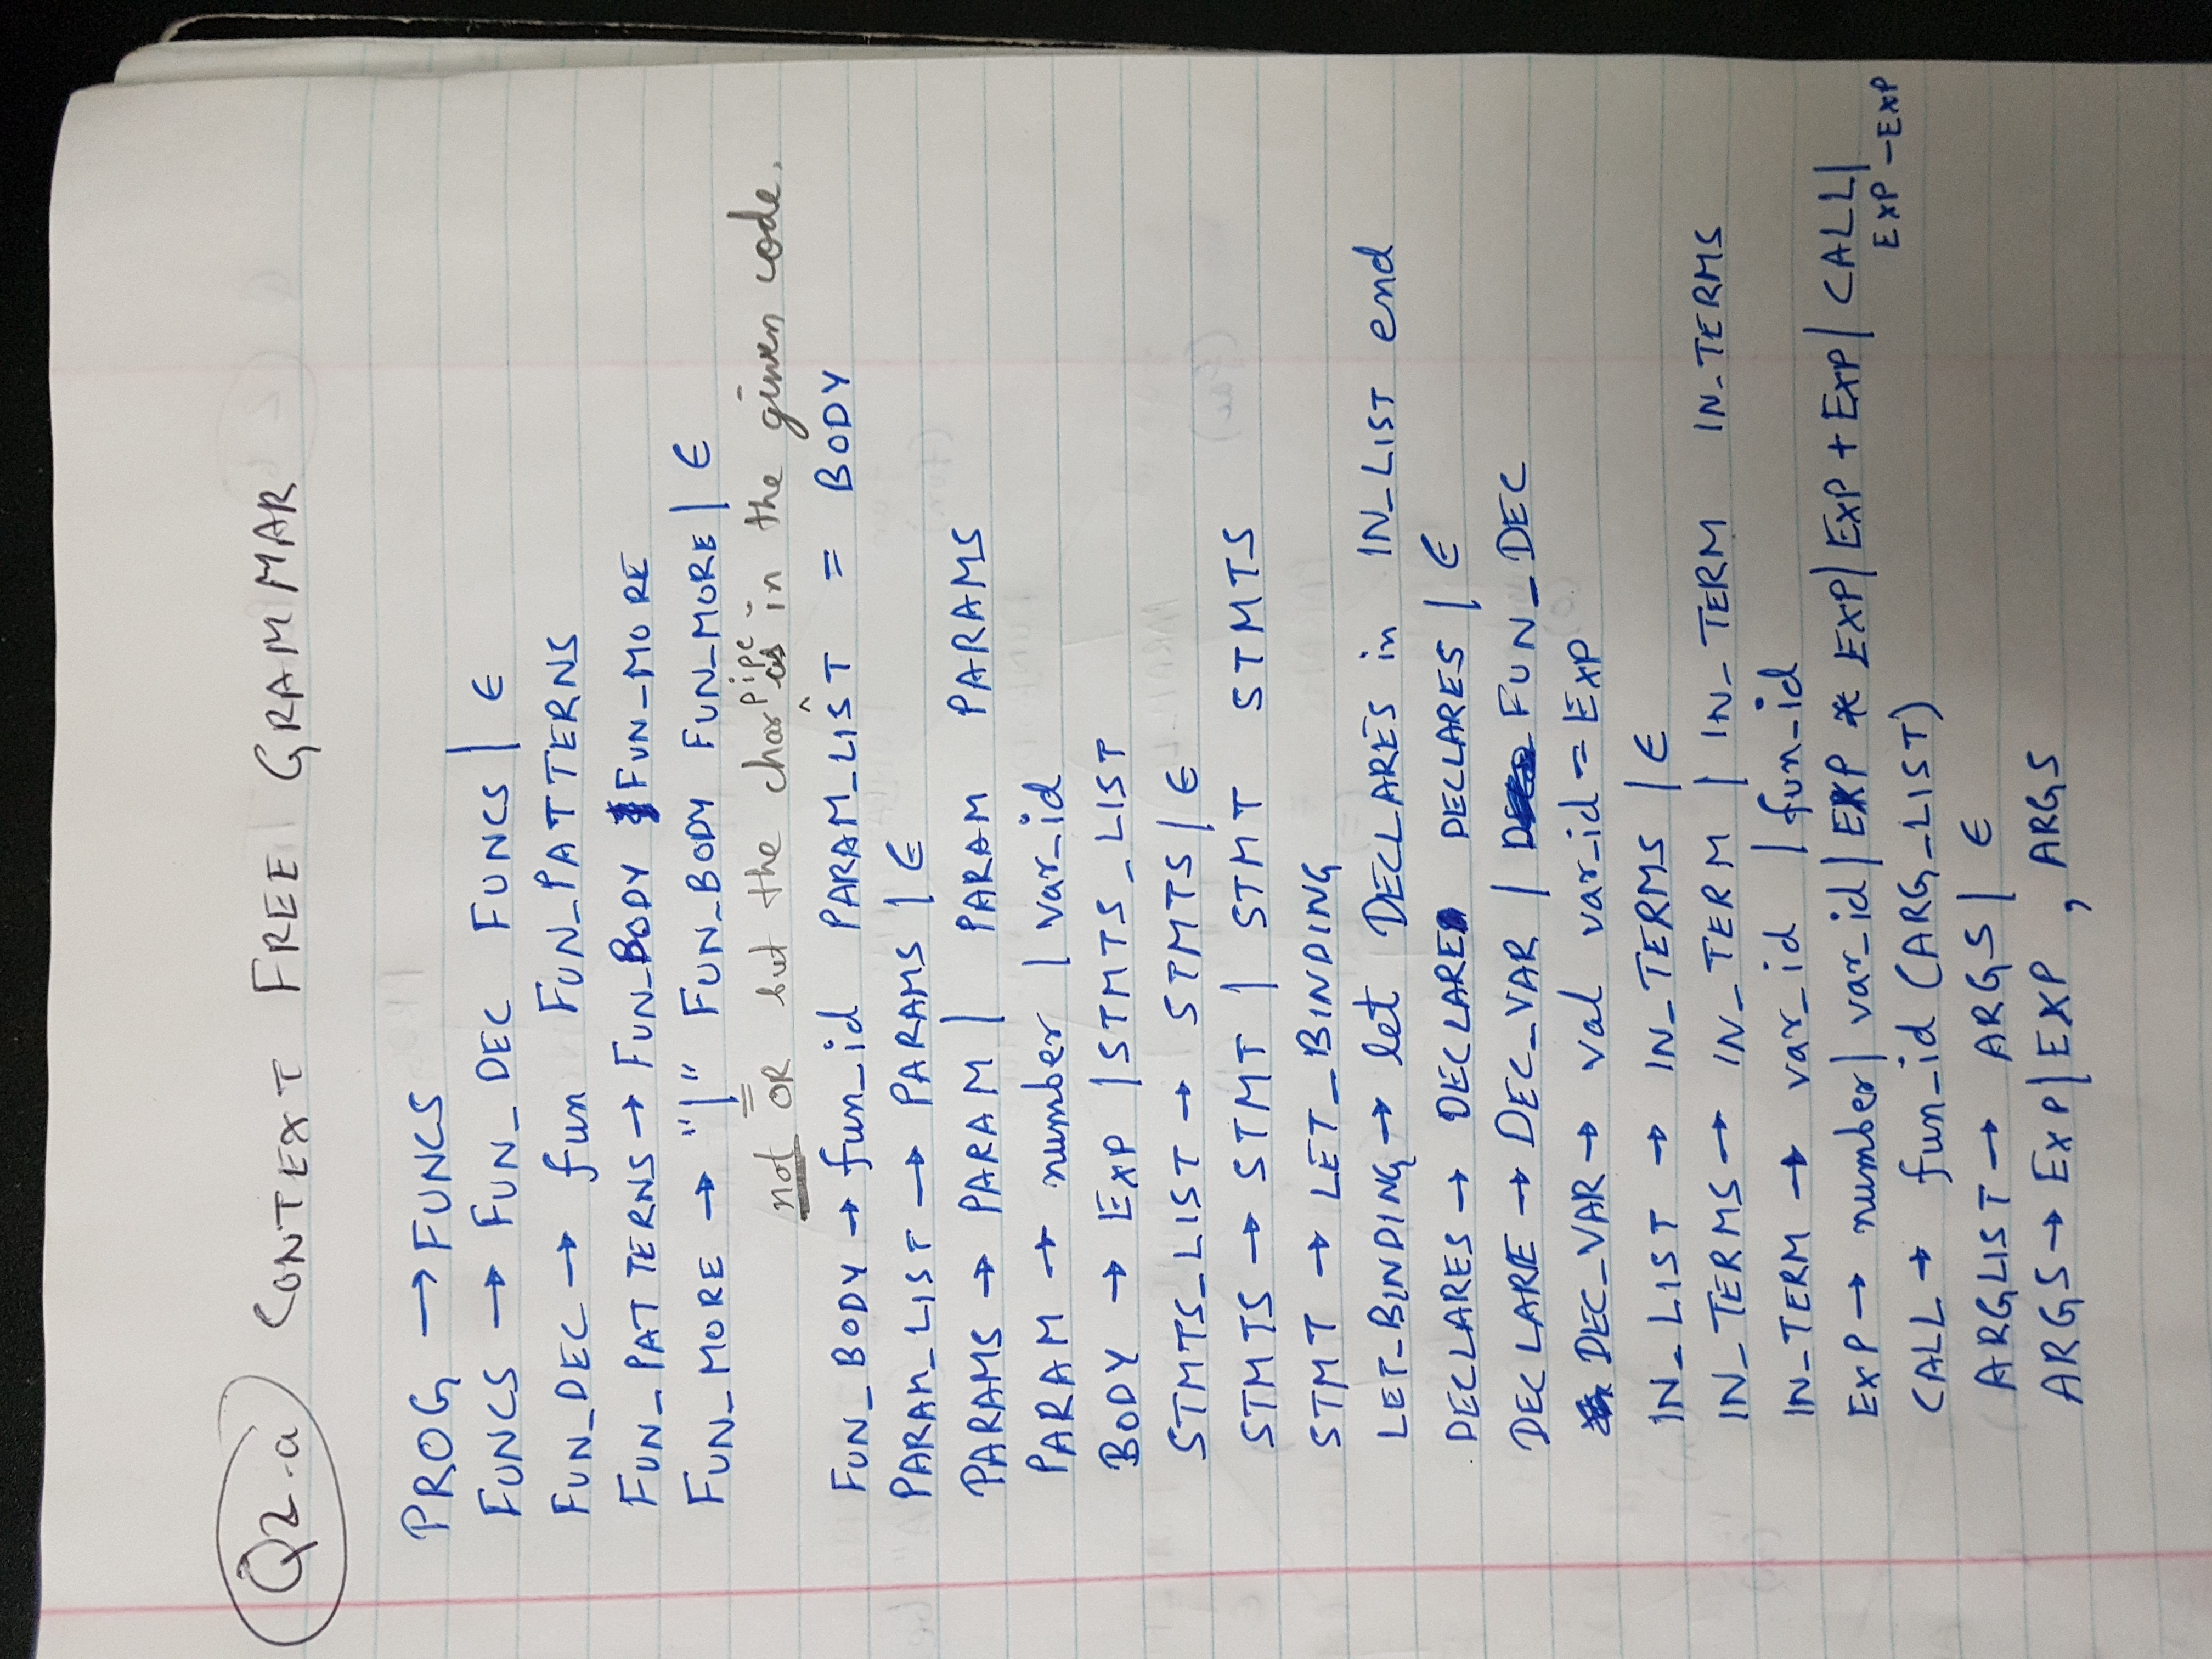 Q2-a CONTEXT FREE GRAMMAR
PROG → FUNCS
FUNCS → FUN_DEC FUNCS | ε
FUN_DEC → fun FUN_PATTERNS
FUN_PATTERNS → FUN_BODY FUN_MORE
FUN_MORE → "|" FUN_BODY FUN_MORE | ε
not OR but the char pipe as in the given code.
FUN_BODY → fun_id PARAM_LIST = BODY
PARAM_LIST → PARAMS | ε
PARAMS → PARAM | PARAM PARAMS
PARAM → number | var_id
BODY → EXP | STMTS_LIST
STMTS_LIST → STMTS | ε
STMTS → STMT | STMT STMTS
STMT → LET_BINDING
LET_BINDING → let DECLARES in IN_LIST end
DECLARES → DECLARE DECLARES | ε
DECLARE → DEC_VAR | FUN_DEC
DEC_VAR → val var_id = EXP
IN_LIST → IN_TERMS | ε
IN_TERMS → IN_TERM | IN_TERM IN_TERMS
IN_TERM → var_id | fun_id
EXP → number | var_id | EXP * EXP | EXP + EXP | CALL |
EXP - EXP
CALL → fun_id (ARG_LIST)
ARGLIST → ARGS | ε
ARGS → EXP | EXP , ARGS